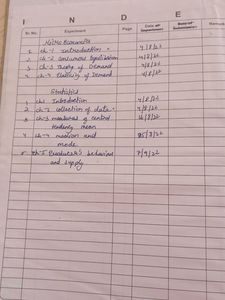 I N D E
Sr. No. Experiment Page Date of Experiment Date of Submission Remark
Micro Economics
1 ch-1 Introduction 4/8/22
2 ch-2 Consumers Equilibrium 4/8/22
3 ch-3 Theory of Demand 4/8/22
4 ch-4 Elasticity of Demand 4/8/22
Statistics
1 ch1 Introduction 4/8/22
2 ch-2 collection of data 4/8/22
3 ch-3 measures of central
tendency mean
4 ch-4 median and
mode
5 ch-5 Producer's behaviour 7/9/22
and supply